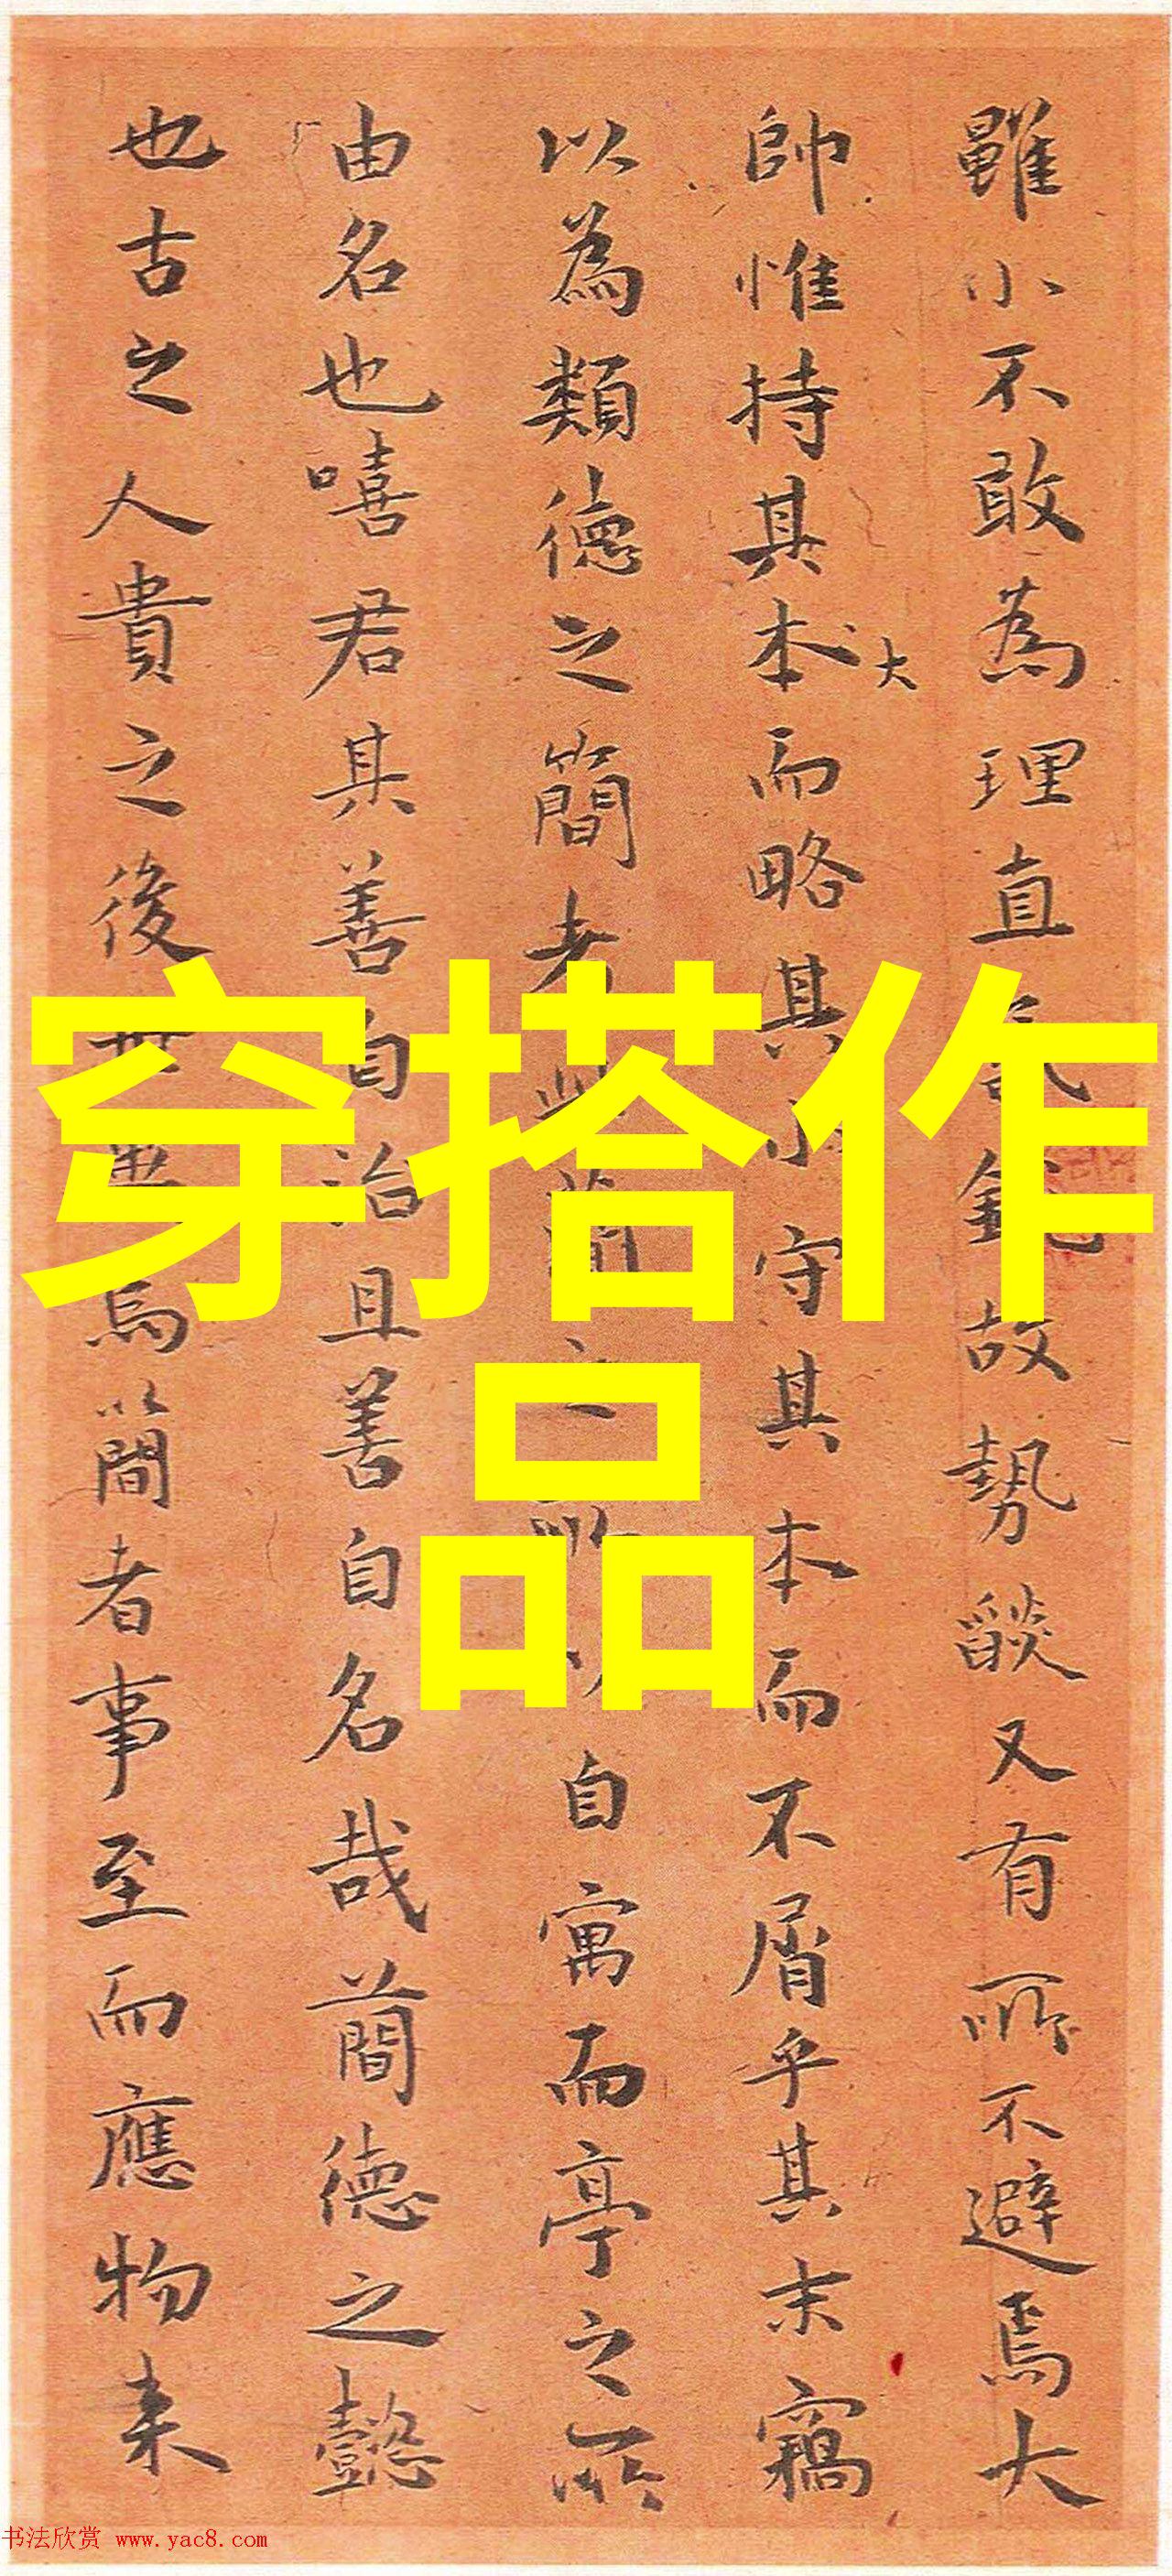 雖小不敢為理直氣銳故勢燄又有所不避焉大
帥惟持其本而略其小守其本而不屑乎其末竊
大
以為類德之簡者此簡之所以自寓而亭之所
由名也嘻君其善自治且善自名哉簡德之懿
也古之人貴之後世無焉簡者事至而應物来
穿搭作
品
书法欣赏 www.yac8.com